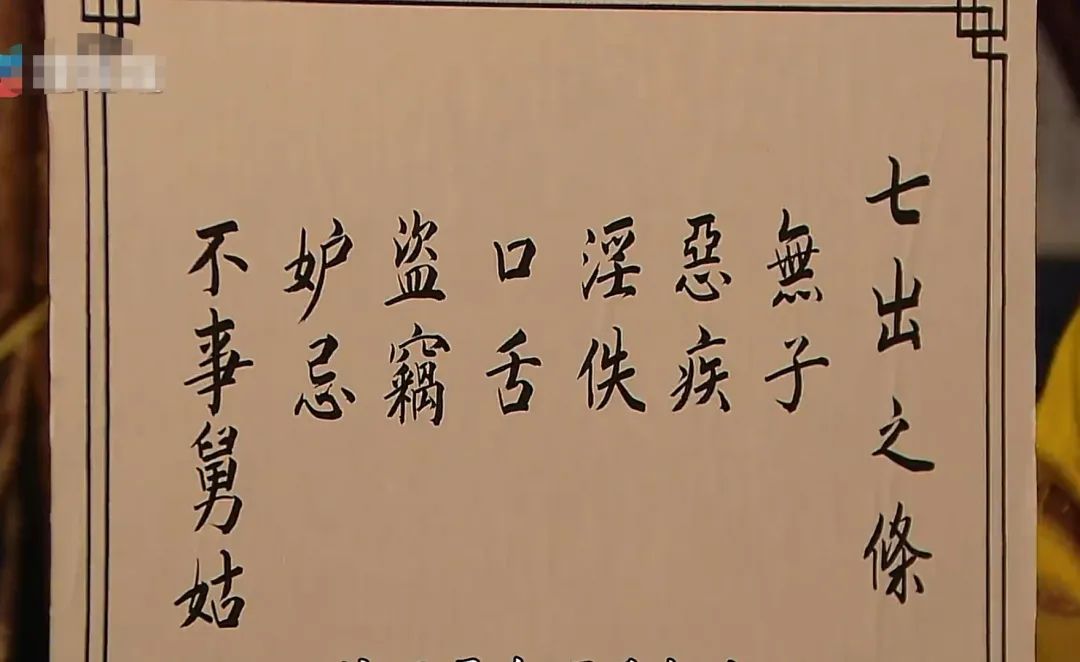 七出之條
無子
惡疾
淫佚
口舌
盜竊
妒忌
不事舅姑